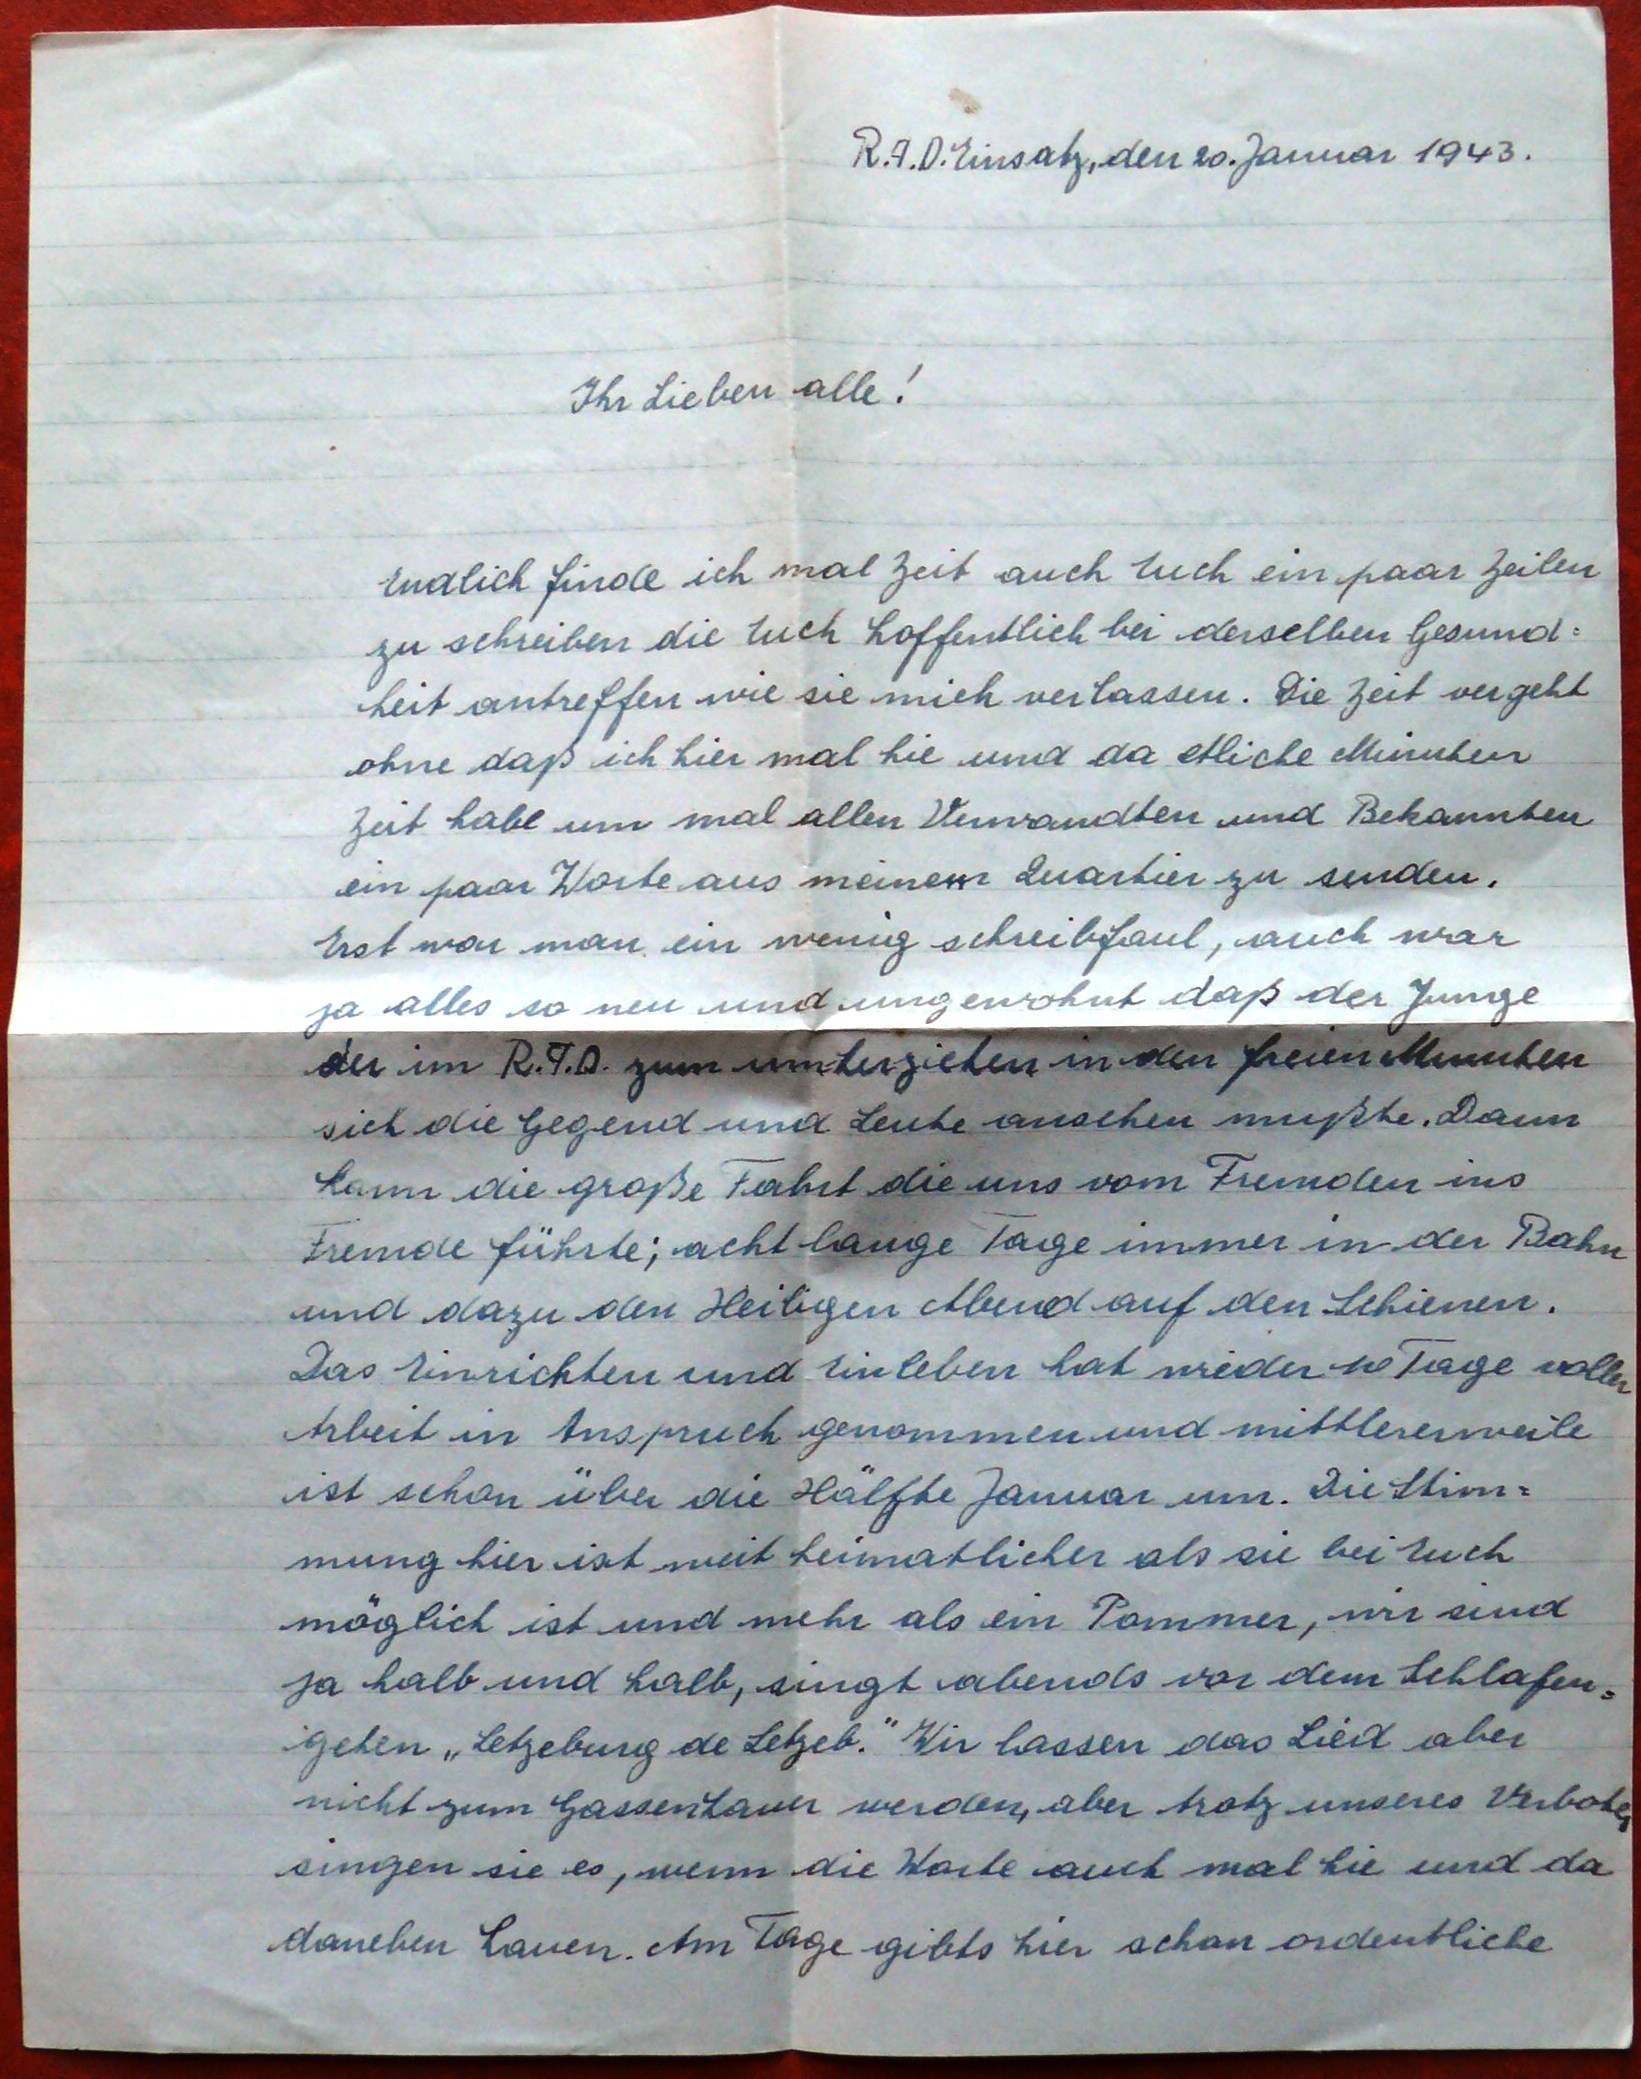 R.A.D. Einsatz, den 20. Januar 1943.
Ihr Lieben alle!
Endlich finde ich mal Zeit auch Euch ein paar Zeilen
zu schreiben die Euch hoffentlich bei derselben Gesund=
heit antreffen wie sie mich verlassen. Die Zeit vergeht
ohne daß ich hier mal hie und da etliche Minuten
Zeit habe um mal allen Verwandten und Bekannten
ein paar Worte aus meinem Quartier zu senden.
Erst war man ein wenig schreibfaul, auch war
ja alles so neu und ungewohnt daß der Junge
der im R.A.D. zum unterziehen in den freien Minuten
sich die Gegend und Leute ansehen mußte. Dann
kam die große Fahrt die uns vom Fremden ins
Fremde führte; acht lange Tage immer in der Bahn
und dazu den Heiligen Abend auf den Schienen.
Das Einrichten und Einleben hat wieder 10 Tage voller
Arbeit in Anspruch genommen und mittlererweile
ist schon über die Hälfte Januar um. Die Stim=
mung hier ist weit heimatlicher als sie bei Euch
möglich ist und mehr als ein Pommer, wir sind
ja halb und halb, singt abends vor dem Schlafen=
gehen „Letzeburg de Letzeb." Wir lassen das Lied aber
nicht zum Gassenhauer werden, aber trotz unseres Verbotes
singen sie es, wenn die Worte auch mal hie und da
daneben hauen. Am Tage gibts hier schon ordentliche